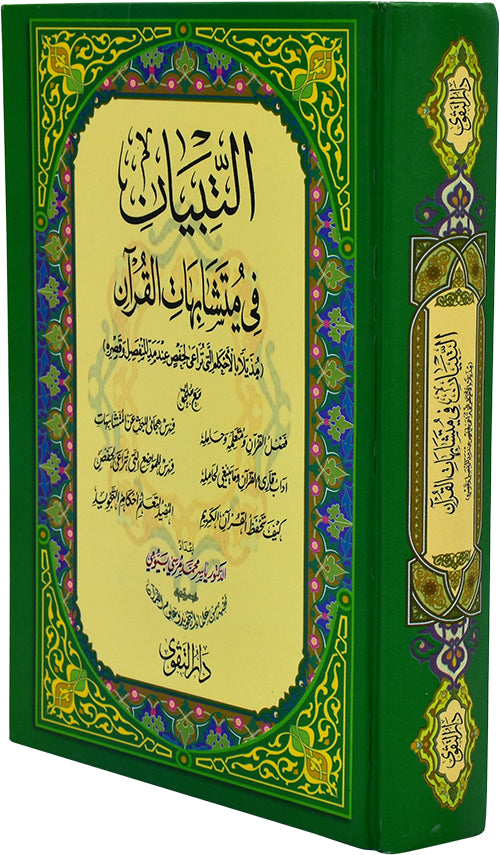 التِّبْيَانِ
فِي مُتَشَابِهَاتِ الْقُرْآنِ
(مُذَيَّلًا بِالأَحْكَامِ الَّتِي تُرَاعَى لِحَفْصٍ عِنْدَ مَدِّ الْمُنْفَصِلِ وَقَصْرِهِ)
مع ملحق
فضل القرآن وتعليمه وحامله فهرس هجائي للبحث عن المتشابهات
آداب قارئ القرآن وما ينبغي لحامله فهرس المواضع التي تراعى لحفص
كيف تحفظ القرآن الكريم المفيد لتعليم أحكام التجويد
إعداد
الدكتور ياسر محمد مرسي بيومي
دار التقوى
دار التقوى
التبيان في متشابهات القرآن
دار التقوى